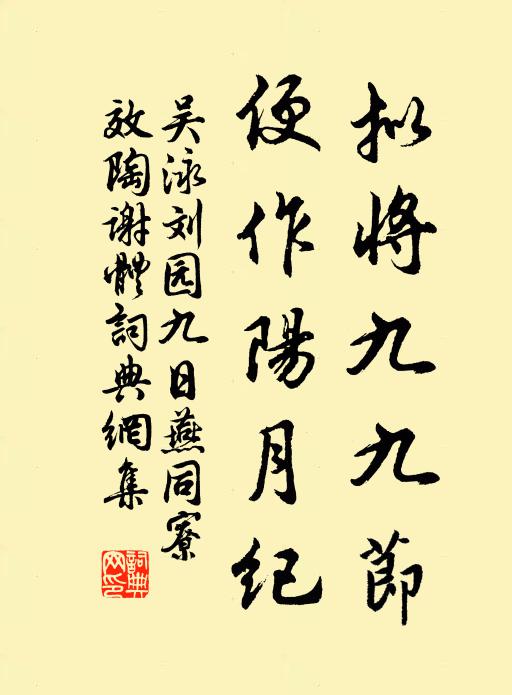 拟将九九節
便作陽月纪
吴泳刘园九日燕同寮
效陶谢體詞典網集
詞典網印